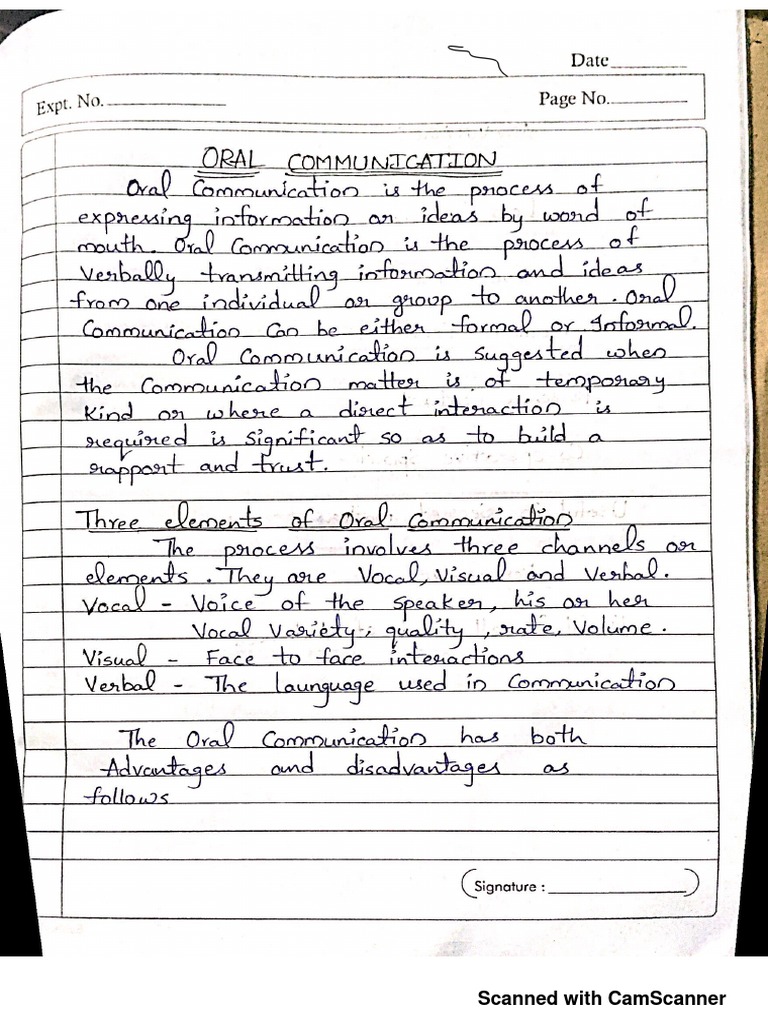 Date
Expt. No.
Page No.
ORAL COMMUNICATION
Oral Communication is the process of
expressing information or ideas by word of
mouth. Oral Communication is the process of
Verbally transmitting information and ideas
from one individual or group to another. Oral
Communication Can be either formal or Informal.
Oral Communication is Suggested when
the Communication matter is of temporary
Kind or where a direct interaction is
required is significant so as to build a
rapport and trust.
Three elements of Oral Communication
The process involves three channels or
elements. They are Vocal, Visual and Verbal.
Vocal - Voice of the speaker, his or her
Vocal Variety, quality, rate, Volume.
Visual - Face to face interactions
Verbal - The launguage used in Communication
The Oral Communication has both
Advantages and disadvantages as
follows
(Signature : )
Scanned with CamScanner